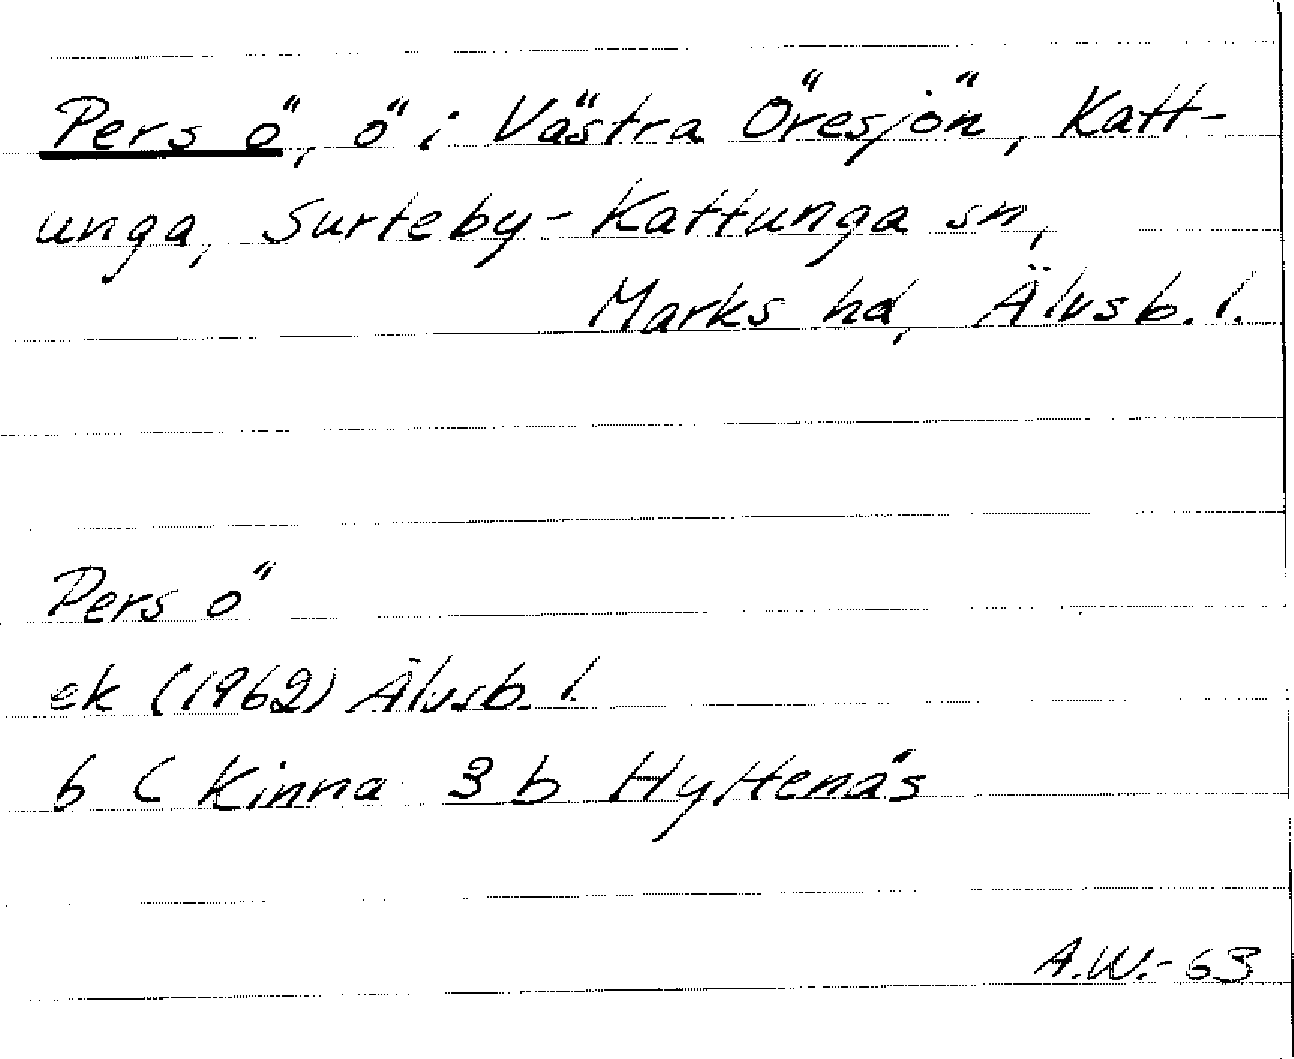 Pers ö, ö i Västra Öresjön, Katt-
unga, Surteby-Kattunga sn,
Marks hd, Älvsb. l.
Pers ö
ek (1962) Älvsb. l.
6 C Kinna 3 b Hyltenäs
A.W.-63